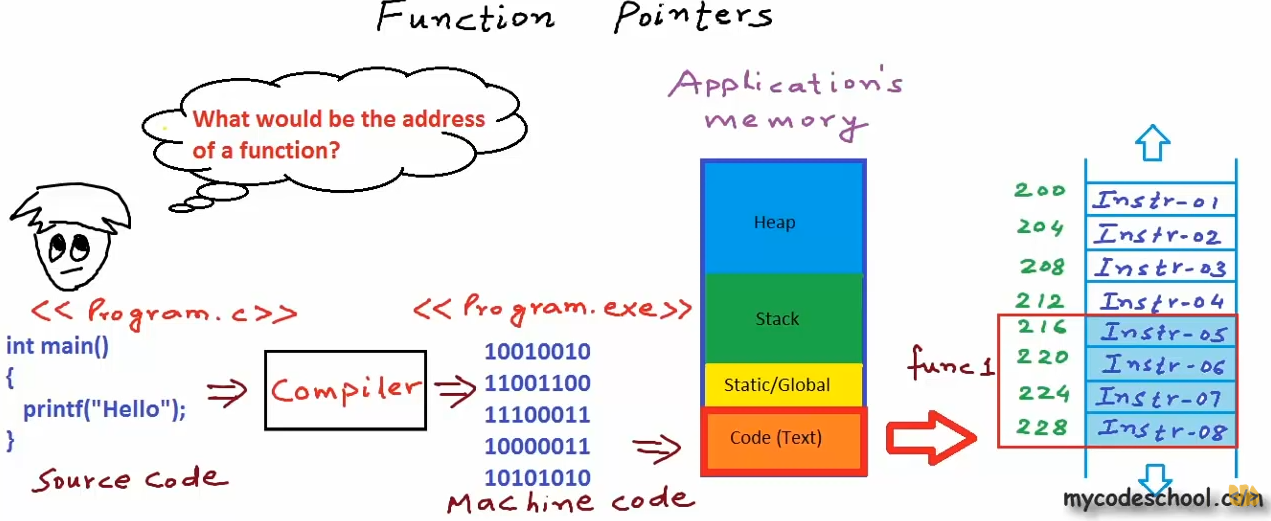 Function Pointers
What would be the address
of a function?
Application's
memory
Heap
Stack
Static/Global
Code (Text)
<< Program.c>>
int main()
{
printf("Hello");
}
Source code
Compiler
<< Program.exe>>
10010010
11001100
11100011
10000011
10101010
Machine code
func1
200 Instr-01
204 Instr-02
208 Instr-03
212 Instr-04
216 Instr-05
220 Instr-06
224 Instr-07
228 Instr-08
mycodeschool.com